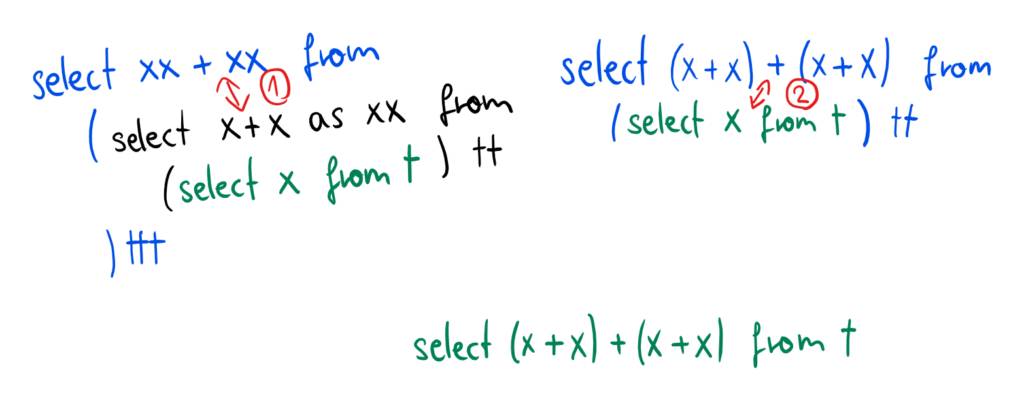 select xx + xx from
①
( select x+x as xx from
(select x from t ) tt
) ttt
select (x+x) + (x+x) from
②
(select x from t ) tt
select (x+x) + (x+x) from t